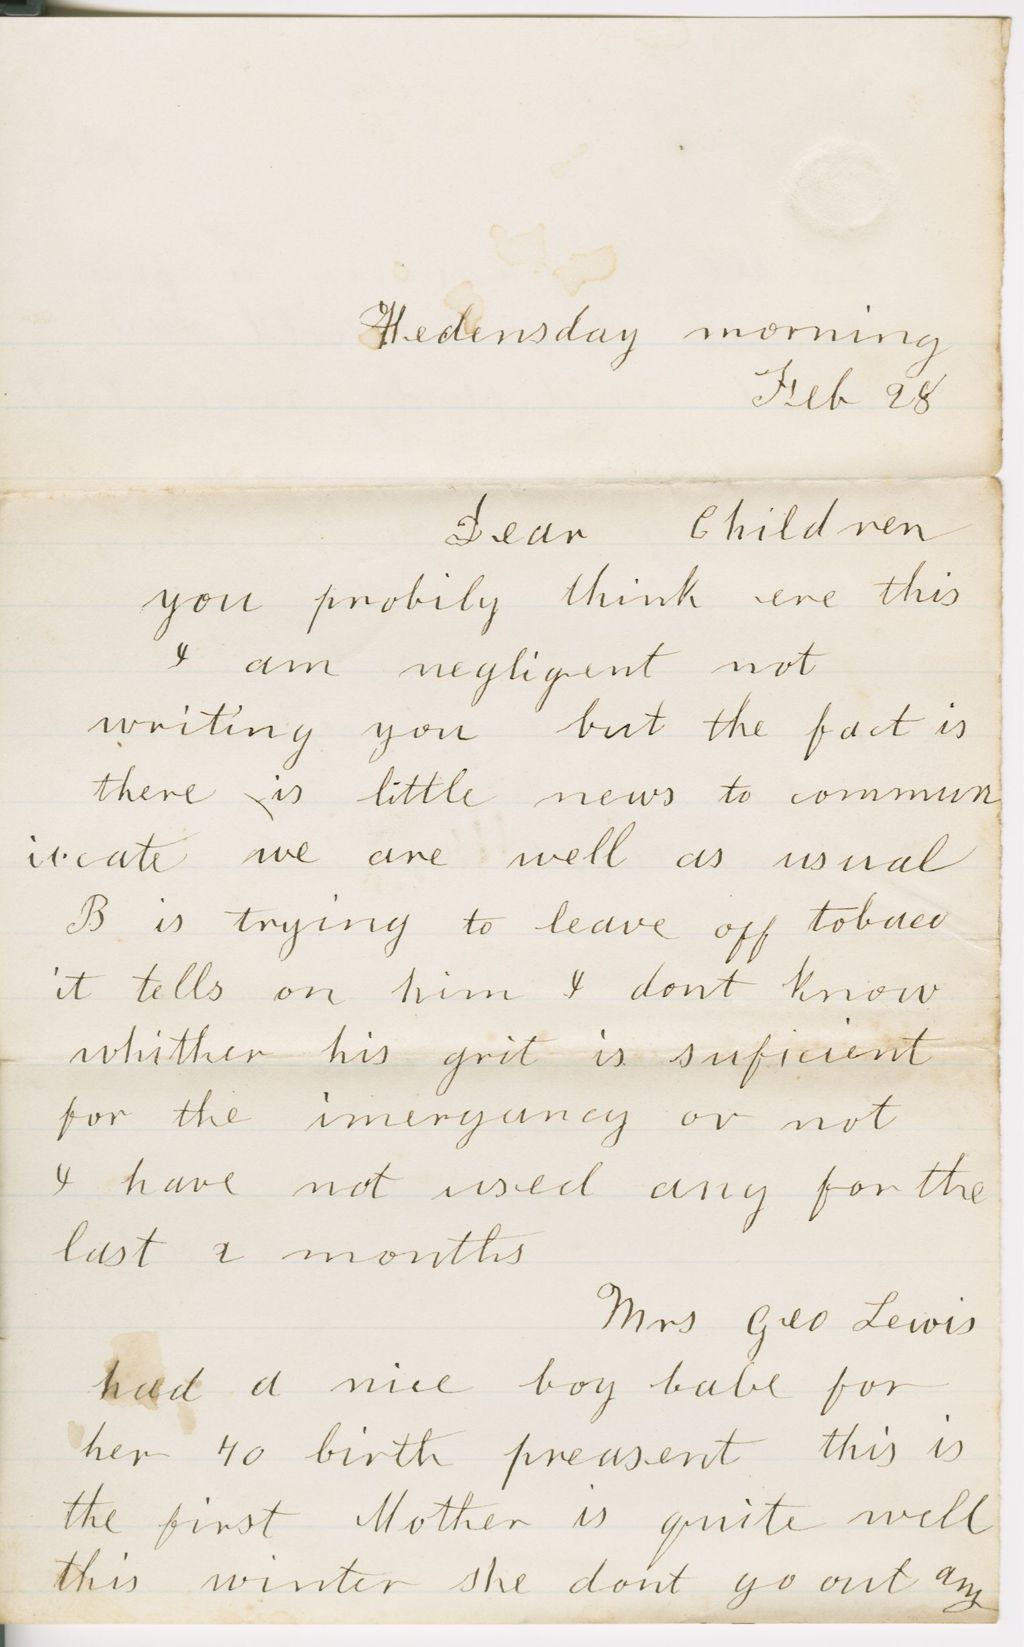 Wedensday morning
Feb 28
Dear Children
you probily think ere this
I am negligent not
writing you but the fact is
there is little news to commun
icate we are well as usual
B is trying to leave off tobaco
it tells on him I dont know
whither his grit is suficient
for the imergancy or not
I have not used any for the
last 2 months
Mrs Geo Lewis
had a nice boy babe for
her 40 birth preasent this is
the first Mother is quite well
this winter she dont go out any